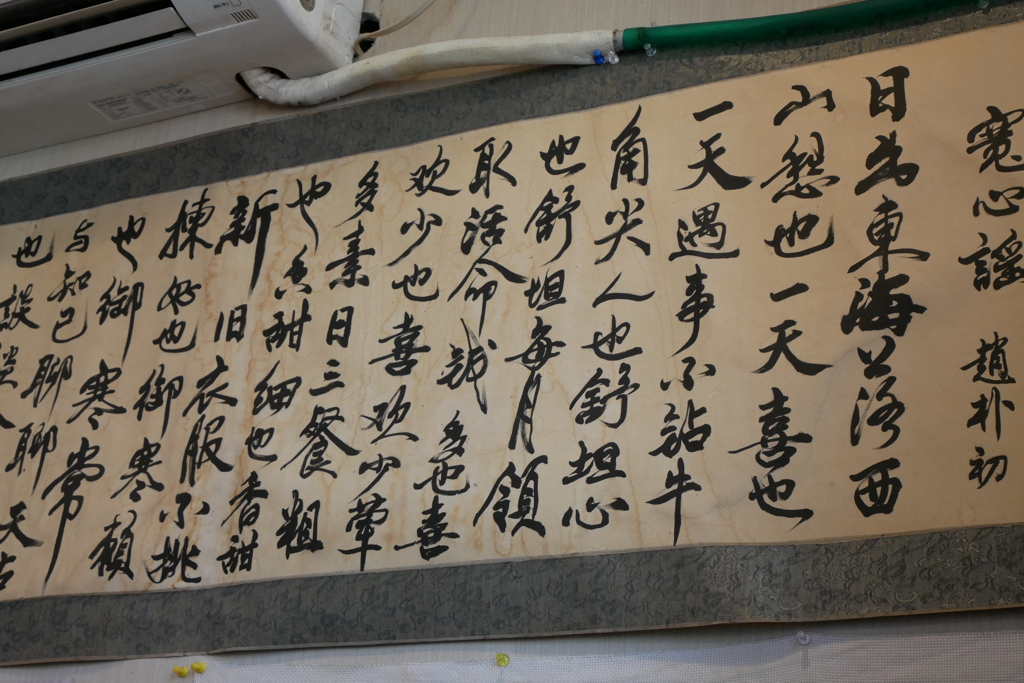 寬心謠 趙朴初
日出東海落西
山愁也一天喜也
一天遇事不鉆牛
角尖人也舒坦心
也舒坦每月領
取活命钱多也喜
欢少也喜欢少荤
多素日三餐粗
也香甜细也香甜
新旧衣服不挑
揀好也御寒賴
也御寒常
与知己聊聊天古
也談